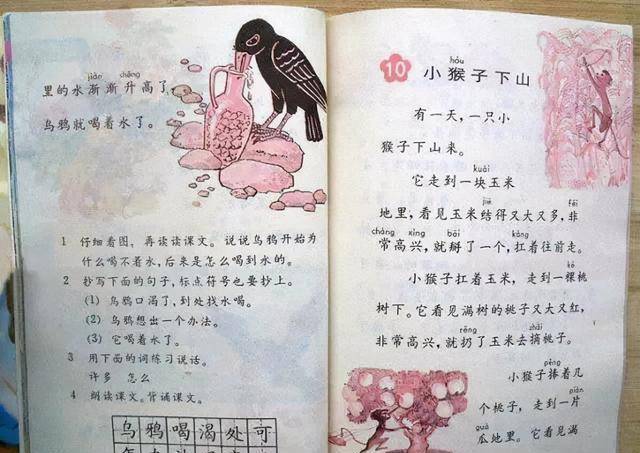 jiàn shēng
里的水渐渐升高了,
乌鸦就喝着水了。
1 仔细看图,再读读课文。说说乌鸦开始为
什么喝不着水,后来是怎么喝到水的。
2 抄写下面的句子,标点符号也要抄上。
(1) 乌鸦口渴了,到处找水喝。
(2) 乌鸦想出一个办法。
(3) 它喝着水了。
3 用下面的词练习说话。
许多 怎么
4 朗读课文。背诵课文。
乌鸦喝渴处可
hóu
10 小猴子下山
有一天,一只小
猴子下山来。
kuài
它走到一块玉米
jiē fēi
地里,看见玉米结得又大又多,非
cháng xìng bāi káng
常高兴,就掰了一个,扛着往前走。
kē
小猴子扛着玉米,走到一棵桃
树下。它看见满树的桃子又大又红,
rēng zhāi
非常高兴,就扔了玉米去摘桃子。
pěng
小猴子捧着几
piàn
个桃子,走到一片
guā
瓜地里。它看见满